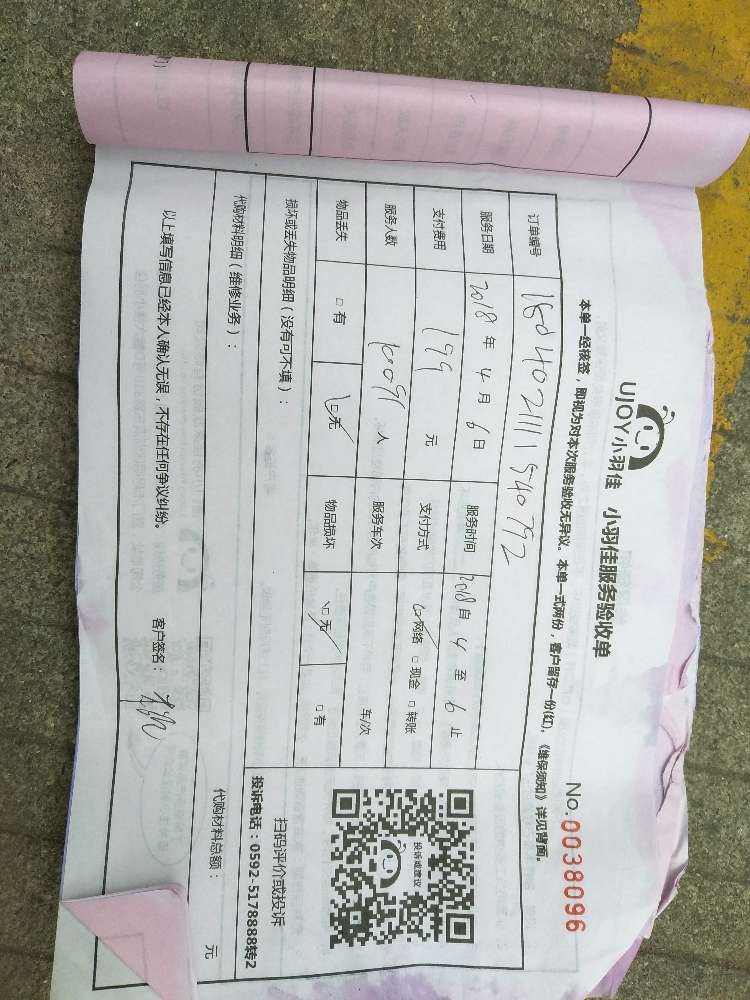 UJOY小羽佳 小羽佳服务验收单
No.0038096
本单一经核签，即视为对本次服务验收无异议。本单一式两份，客户留存一份(红)，《维保须知》详见背面。
订单编号
服务日期 2018 年 4 月 6 日 服务时间 2018 自 4 至 6 止
支付费用 199 元 支付方式 ☑网络 □现金 □转账
服务人数 人 服务车次 车/次
物品丢失 □有 ☑无 物品损坏 ☑无 □有
投诉或建议
扫码评价或投诉
投诉电话：0592-5178888转2
损坏或丢失物品明细（没有可不填）：
代购材料明细（维修业务）： 代购材料总额： 元
以上填写信息已经本人确认无误，不存在任何争议纠纷。 客户签名：